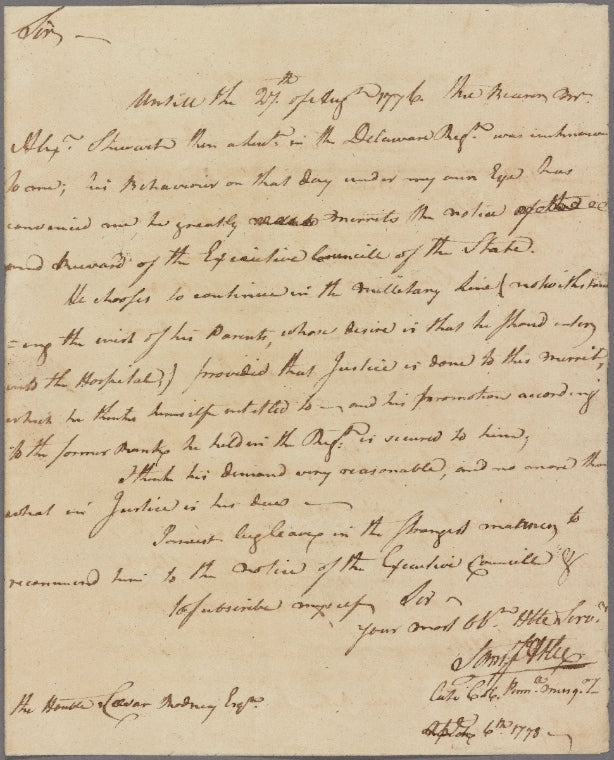 Sir,
Untill the 27th of Augt 1776. the Bearer Mr.
Alexr. Stewart then a Lieut. in the Delaware Regt. was unknown
to me; his Behaviour on that day under my own Eye has
convinced me he greatly merrits the notice
and Reward of the Executive Councill of the State.
He chooses to continue in the milletary Line (notwithstand
=ing the wish of his Parents, whose desire is that he should enter
into the Hospital,) provided that Justice is done to this merrit,
which he thinks himself intitled to — and his promotion according
to the former Ranks he held in the Regt. is secured to him;
I think his demand very reasonable, and no more than
what in Justice is his due —
I must beg leave in the strongest manner to
recommend him to the notice of the Executive Councill &
to subscribe myself Sir
Your most Obt. Hble Servt.
Saml J Atlee
Late Col. Penna. Musqt.
6th. 1778
the Honble Cesar Rodney Esqr.